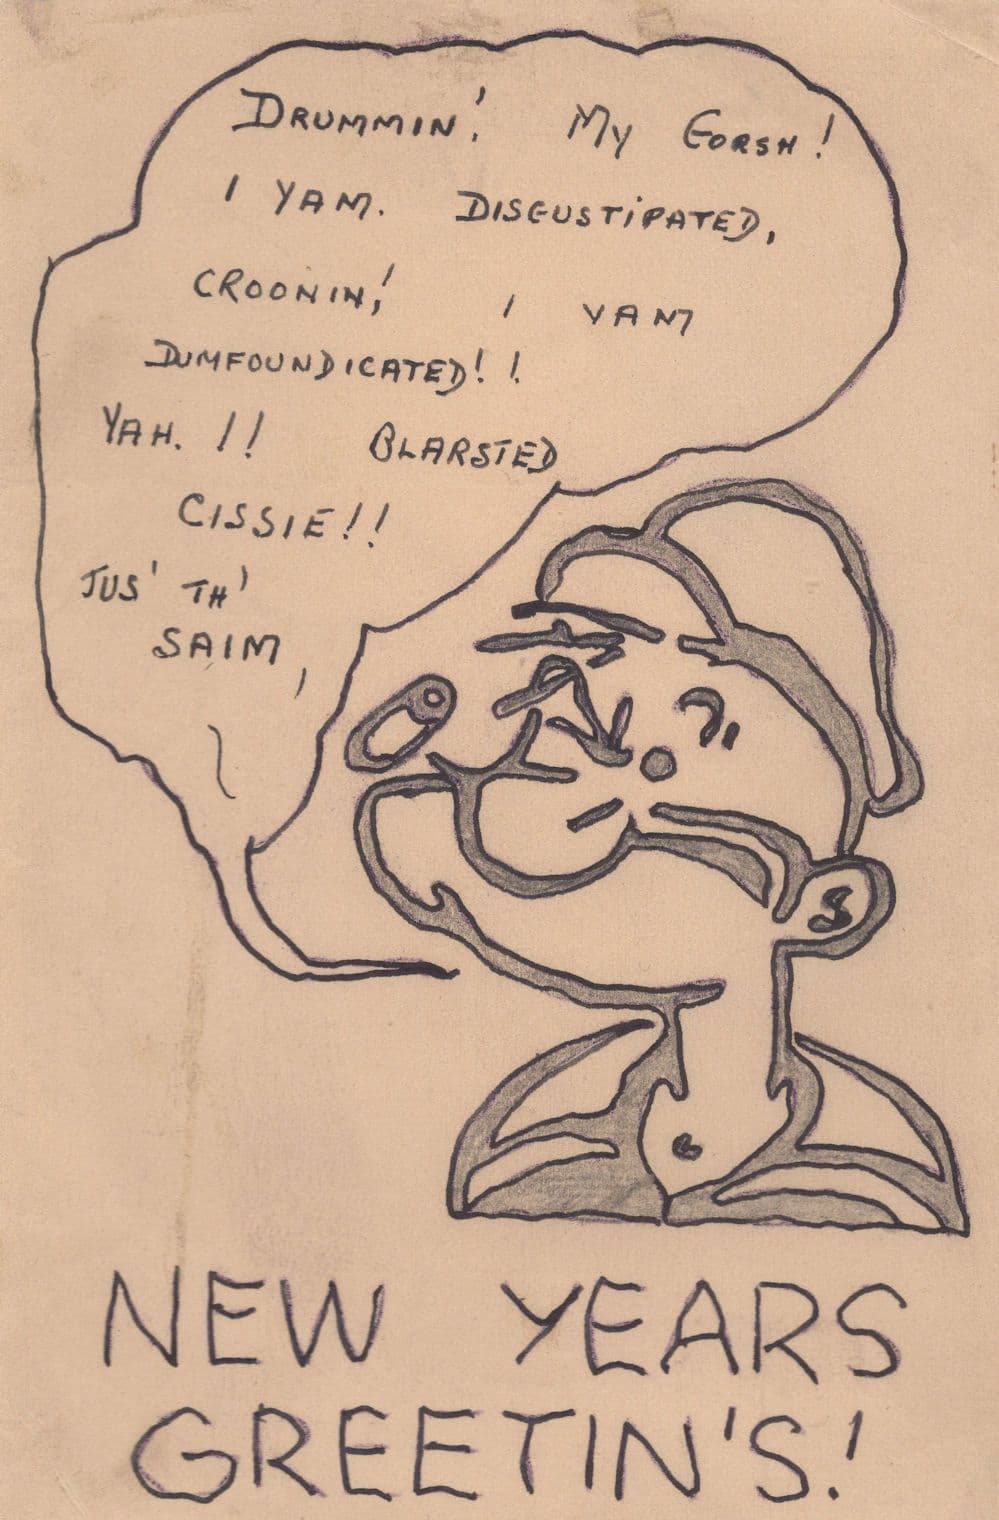 DRUMMIN'! MY GORSH!
I YAM. DISGUSTIPATED,
CROONIN'! I YAM
DUMFOUNDICATED!!
YAH.!! BLARSTED
CISSIE!!
JUS' TH'
SAIM,
NEW YEARS
GREETIN'S!